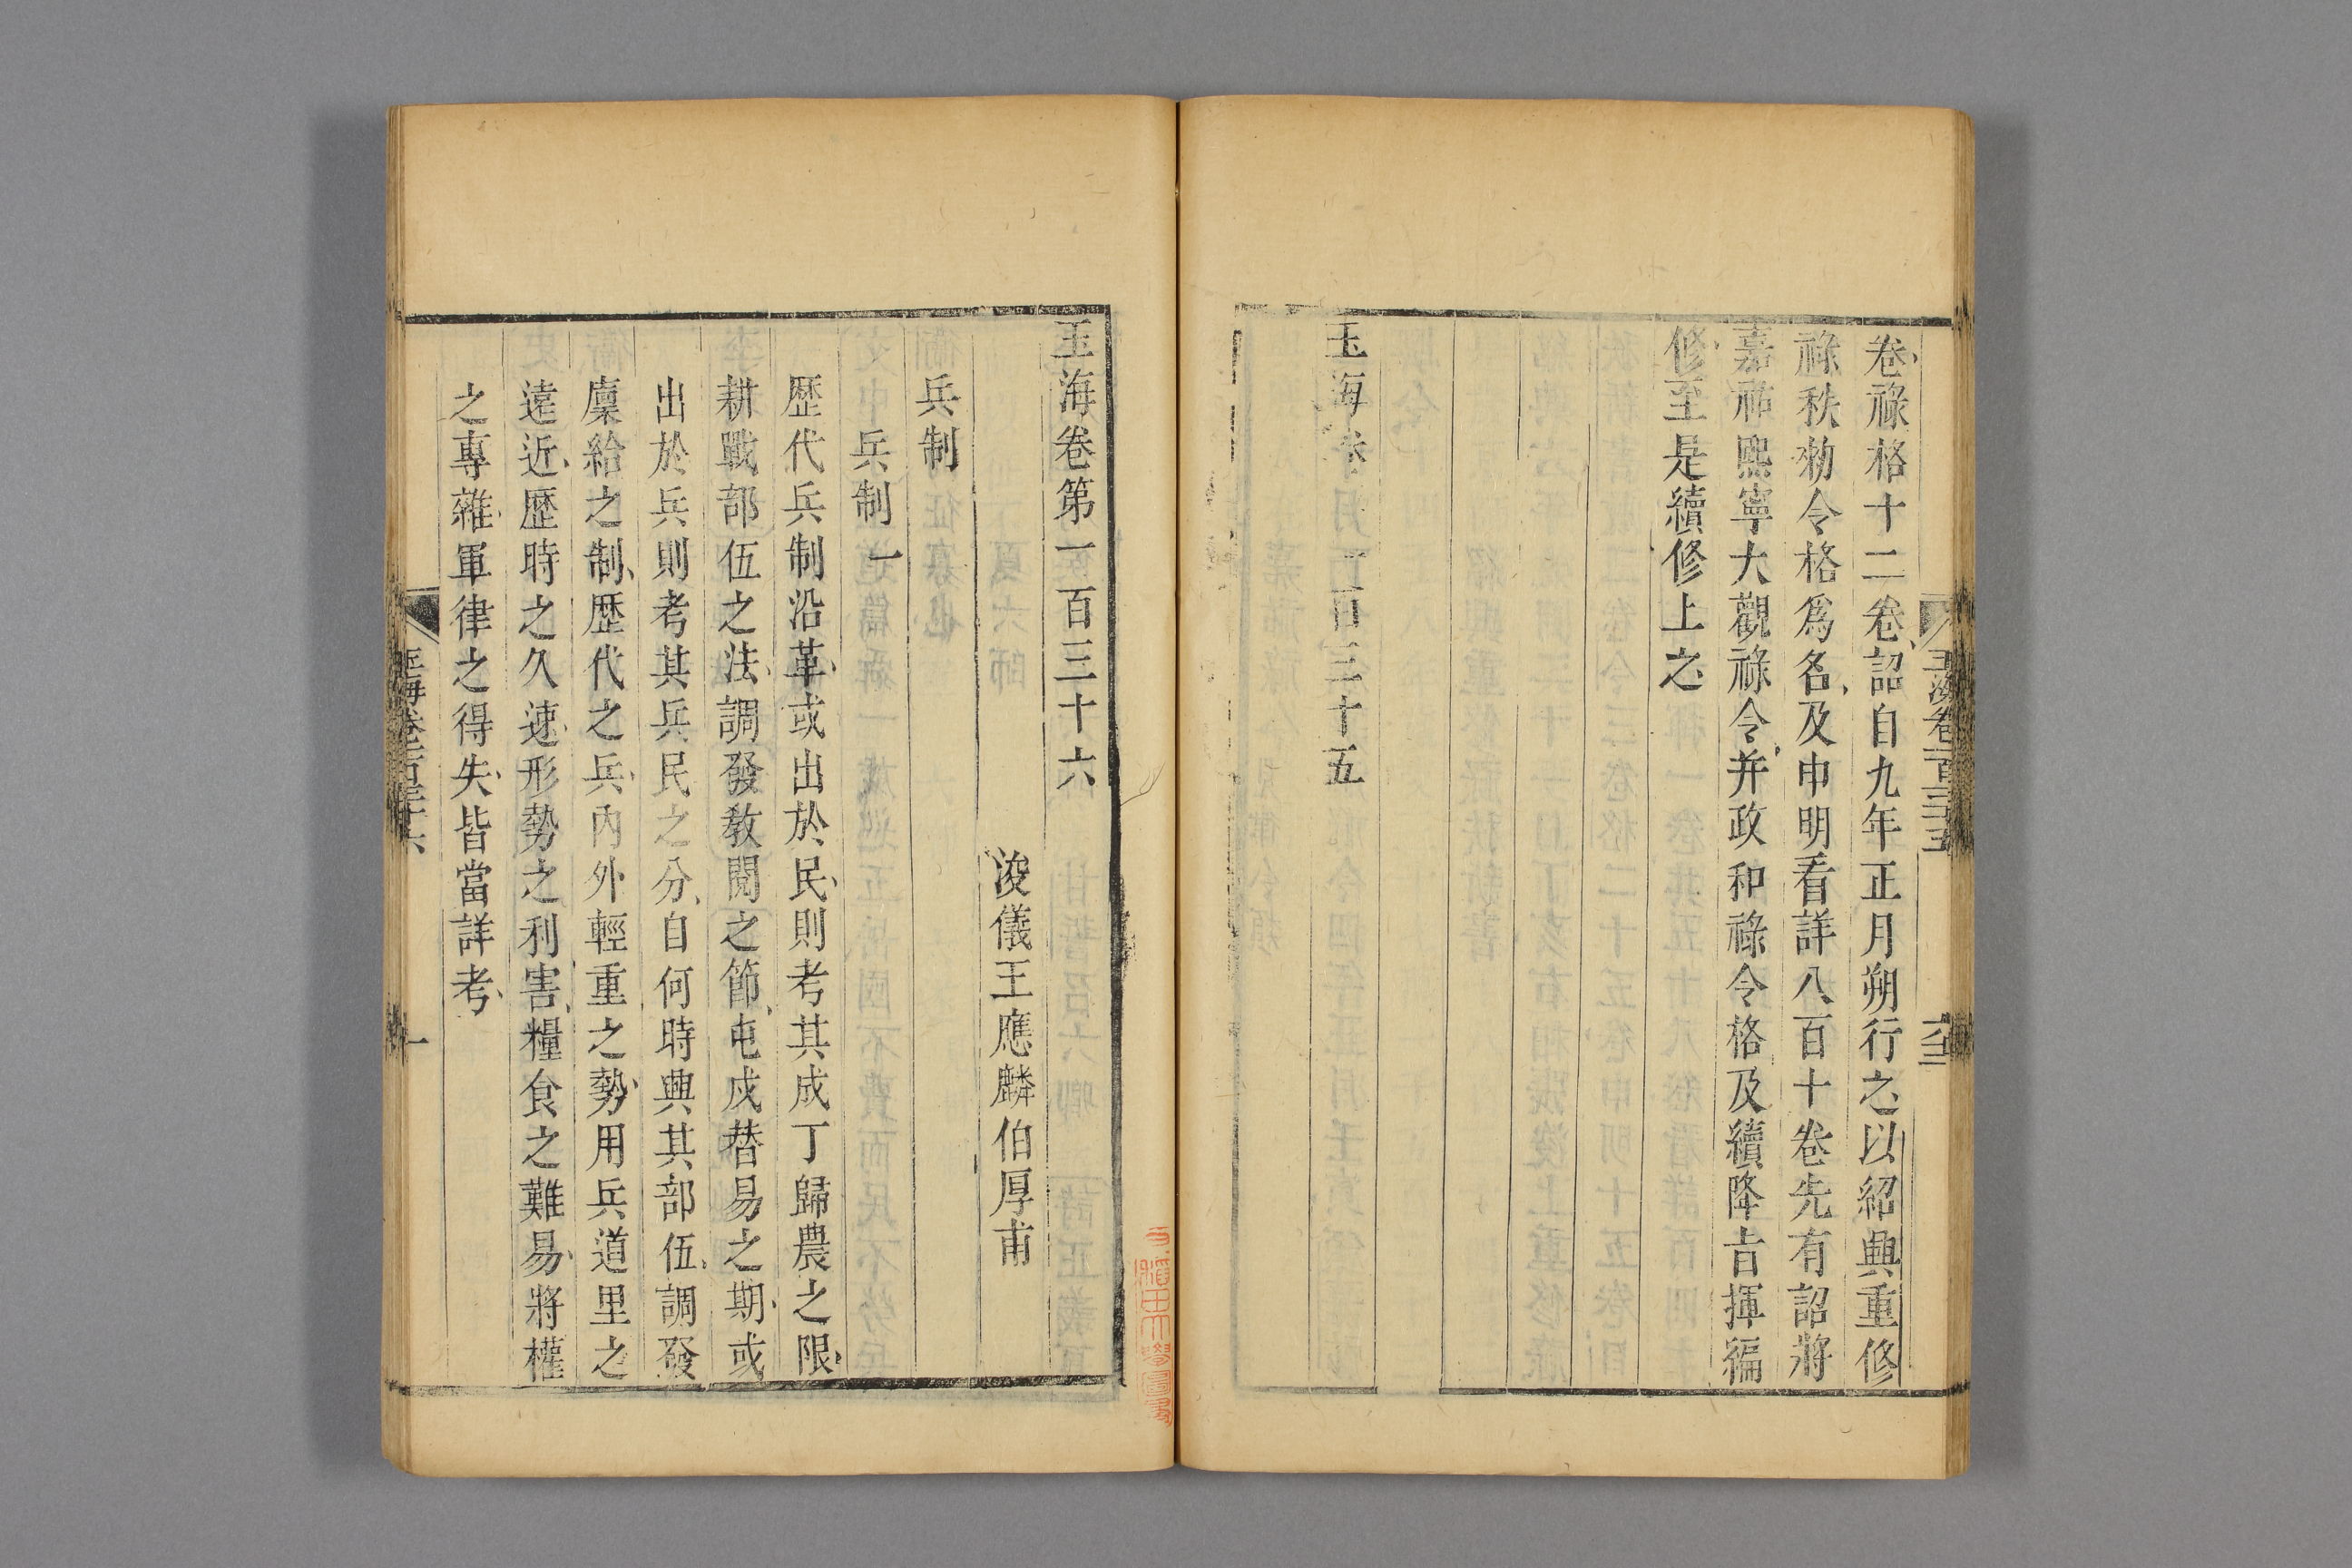 卷祿格十二卷詔自九年正月朔行之以紹興重修
祿秩勑令格爲名及申明看詳八百十卷先有詔將
嘉祐熙寧大觀祿令并政和祿令格及續降旨揮編
修至是續修上之
玉海卷一百三十五
玉海卷一百三十五
六十二
玉海卷第一百三十六
浚儀王應麟伯厚甫
兵制
兵制一
歷代兵制沿革或出於民則考其成丁歸農之限
耕戰部伍之法調發教閱之節屯戍替易之期或
出於兵則考其兵民之分自何時興其部伍調發
廩給之制歷代之兵內外輕重之勢用兵道里之
遠近歷時之久速形勢之利害糧食之難易將權
之專雜軍律之得失皆當詳考
玉海卷一百三十六
一